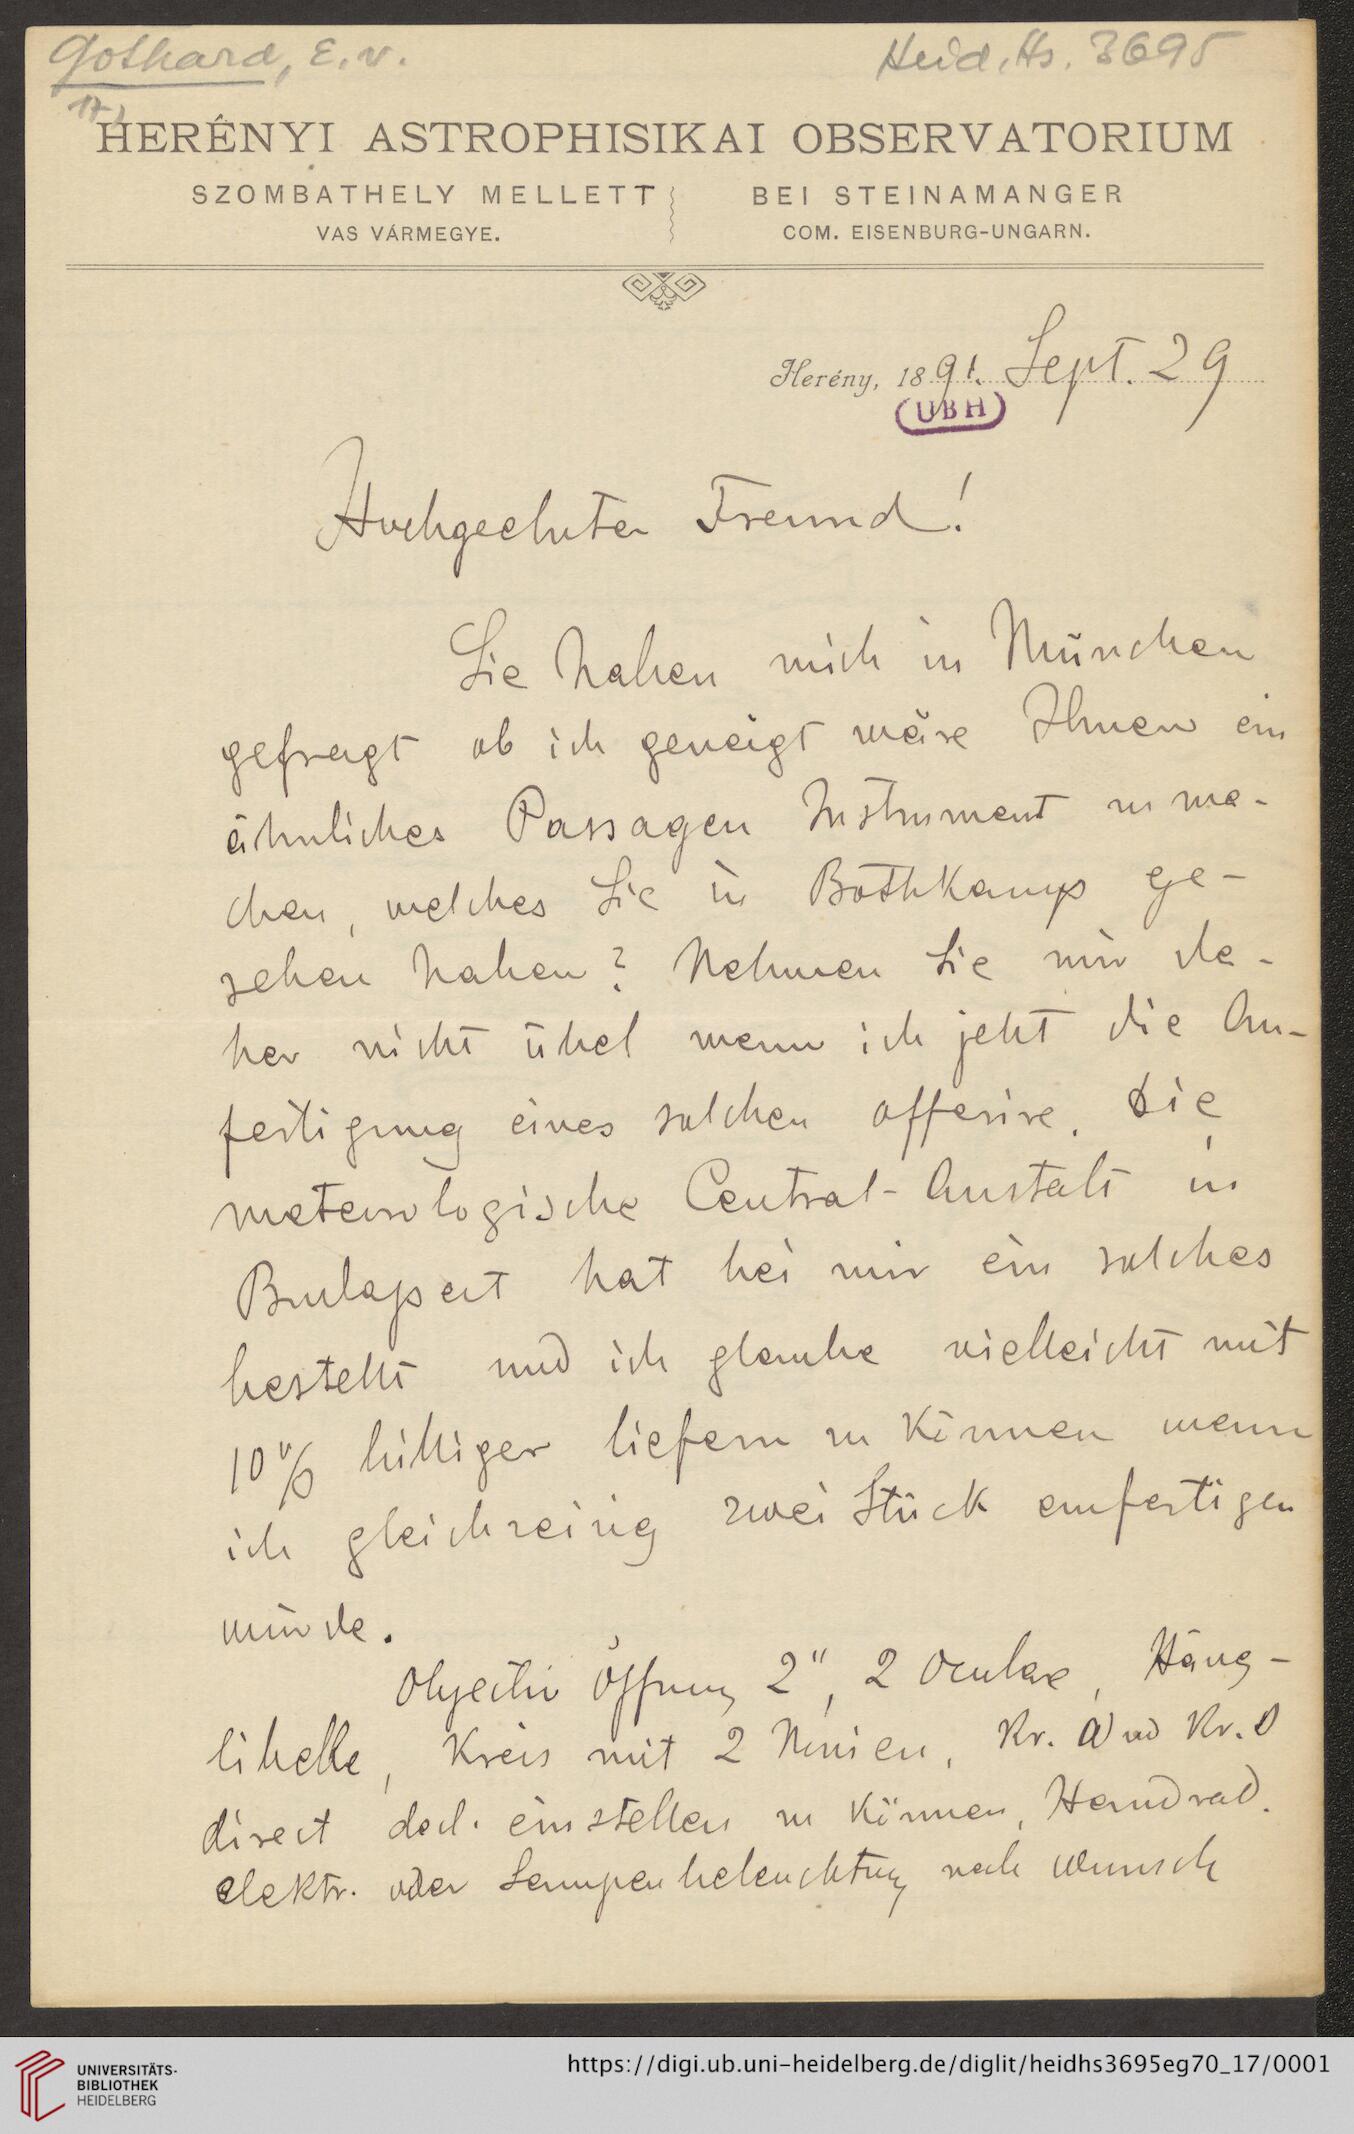 Gothard, E. v.
Heid. Hs. 3695
17,
HERÉNYI ASTROPHISIKAI OBSERVATORIUM
SZOMBATHELY MELLETT
VAS VÁRMEGYE.
BEI STEINAMANGER
COM. EISENBURG-UNGARN.
Herény, 1891. Sept. 29
UBH
Hochgeehrter Freund!
Sie haben mich in München
gefragt ob ich geneigt wäre Ihnen ein
ähnliches Passagen Instrument zu ma-
chen, welches Sie in Bothkamp ge-
sehen haben? Nehmen Sie mir da-
her nicht übel wenn ich jetzt die An-
fertigung eines solchen offerire. Die
meteorologische Central-Anstalt in
Budapest hat bei mir ein solches
bestellt und ich glaube vielleicht mit
10% billiger liefern zu können wenn
ich gleichzeitig zwei Stück anfertigen
würde.
Objectiv Öffnung 2", 2 Oculare, Häng-
libelle, Kreis mit 2 Nonien, Kr. und Kr. O
direct decl. einstellen zu können, Handrad.
elektr. oder Lampenbeleuchtung nach Wunsch
UNIVERSITÄTS-
BIBLIOTHEK
HEIDELBERG
https://digi.ub.uni-heidelberg.de/diglit/heidhs3695eg70_17/0001